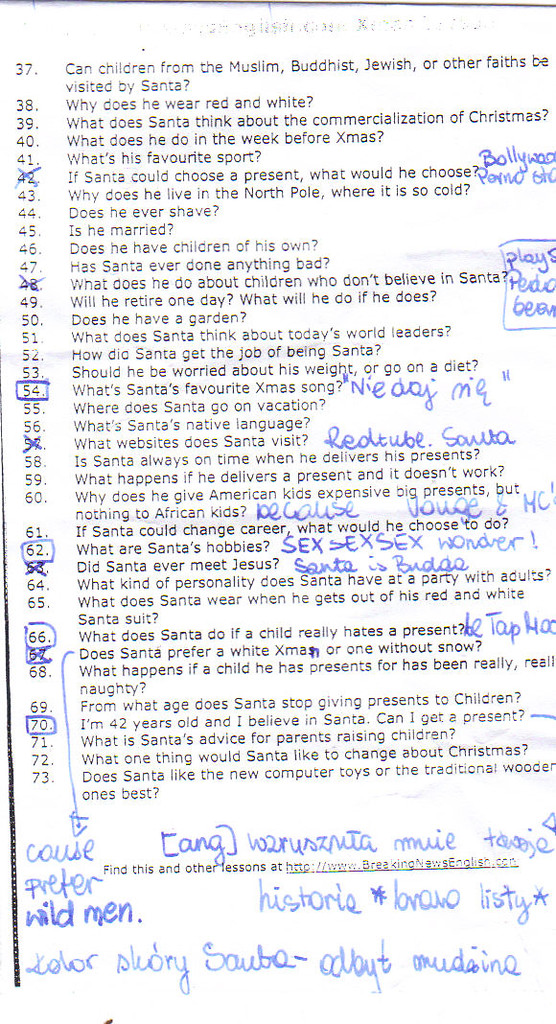 37. Can children from the Muslim, Buddhist, Jewish, or other faiths be
visited by Santa?
38. Why does he wear red and white?
39. What does Santa think about the commercialization of Christmas?
40. What does he do in the week before Xmas?
41. What's his favourite sport?
Bollywood
42. If Santa could choose a present, what would he choose?
Porno
43. Why does he live in the North Pole, where it is so cold?
44. Does he ever shave?
45. Is he married?
46. Does he have children of his own?
47. Has Santa ever done anything bad?
plays
48. What does he do about children who don't believe in Santa?
Pedo
bear
49. Will he retire one day? What will he do if he does?
50. Does he have a garden?
51. What does Santa think about today's world leaders?
52. How did Santa get the job of being Santa?
53. Should he be worried about his weight, or go on a diet?
54. What's Santa's favourite Xmas song? "Nie daj się"
55. Where does Santa go on vacation?
56. What's Santa's native language?
57. What websites does Santa visit? Redtube. Santa
58. Is Santa always on time when he delivers his presents?
59. What happens if he delivers a present and it doesn't work?
60. Why does he give American kids expensive big presents, but
nothing to African kids? because
61. If Santa could change career, what would he choose to do?
62. What are Santa's hobbies? SEX SEX SEX wonder!
63. Did Santa ever meet Jesus? Santa is Budda
64. What kind of personality does Santa have at a party with adults?
65. What does Santa wear when he gets out of his red and white
Santa suit?
66. What does Santa do if a child really hates a present? be Tap
67. Does Santa prefer a white Xmas or one without snow?
68. What happens if a child he has presents for has been really,
naughty?
69. From what age does Santa stop giving presents to Children?
70. I'm 42 years old and I believe in Santa. Can I get a present?
71. What is Santa's advice for parents raising children?
72. What one thing would Santa like to change about Christmas?
73. Does Santa like the new computer toys or the traditional wooden
ones best?
[ang] wzruszyła mnie twoja
cause
Find this and other lessons at http://www.BreakingNewsEnglish.com
prefer
historia *brawo listy*
wild men.
kolor skóry Santa - odbyt